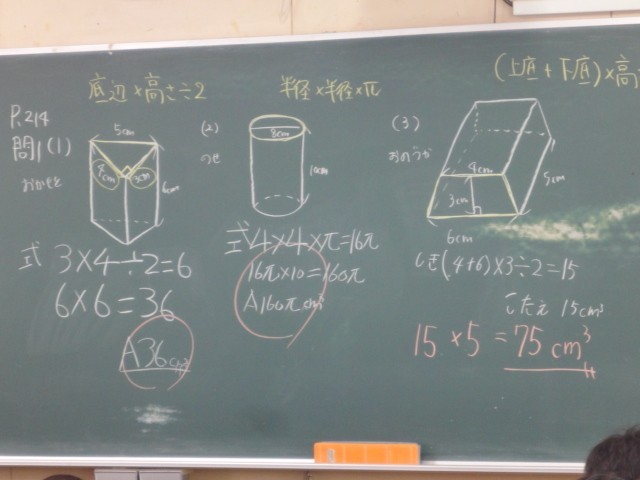 底辺×高さ÷2
半径×半径×π
(上底+下底)×高
P.214
問1(1)
5cm
4cm
3cm
6cm
式 3×4÷2=6
6×6=36
A36cm³
(2)
8cm
10cm
式4×4×π=16π
16π×10=160π
A160πcm³
(3)
4cm
3cm
5cm
6cm
しき(4+6)×3÷2=15
こたえ 15cm³
15×5=75cm³